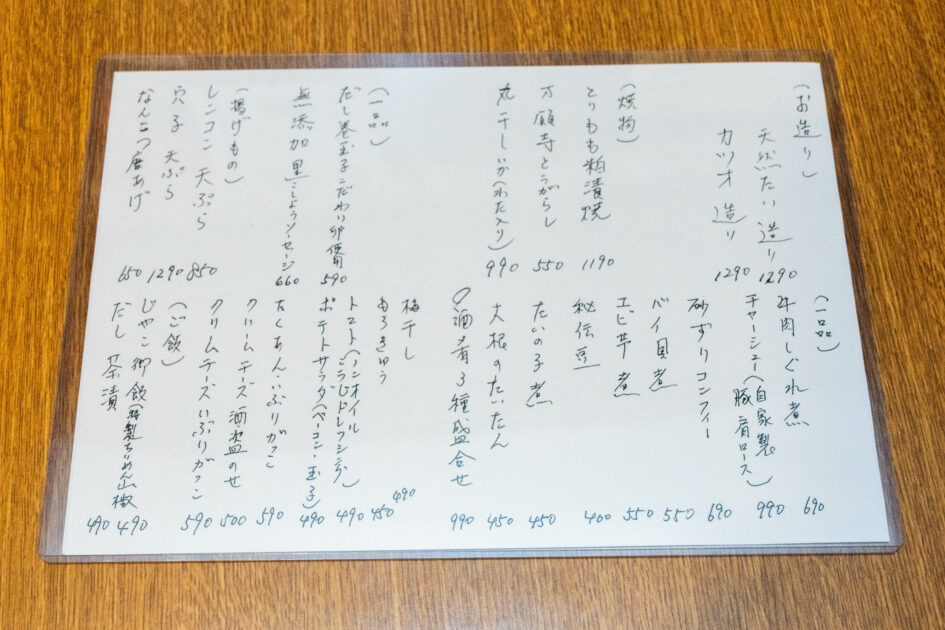 (お造り)
天然たい造り 1290
カツオ造り 1290
(焼物)
とりもも粕漬焼 1190
万願寺とうがらし 550
丸干しいか(わた入り) 990
(一品)
だし巻玉子こだわり卵使用 590
無添加黒こしょうソーセージ 660
(揚げもの)
レンコン天ぷら 850
穴子天ぷら 1290
なんこつ唐あげ 650
(一品)
牛肉しぐれ煮 690
チャーシュー(自家製豚肩ロース) 990
砂ずりコンフィー 690
バイ貝煮 550
エビ芋煮 550
秘伝豆 400
たいの子煮 450
大根のたいたん 450
酒肴3種盛合せ 990
梅干し 490
もろきゅう 450
トマト(ノンオイルこうじドレッシング) 490
ポテトサラダ(ベーコン・玉子) 490
たくあん・いぶりがっこ 590
クリームチーズ酒盗のせ 500
クリームチーズいぶりがっこ 590
(ご飯)
じゃこ御飯(特製ちりめん山椒 490
だし茶漬 490